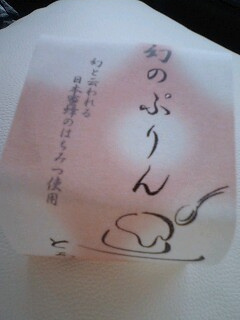 幻のぷりん
幻と云われる
日本蜜蜂のはちみつ使用